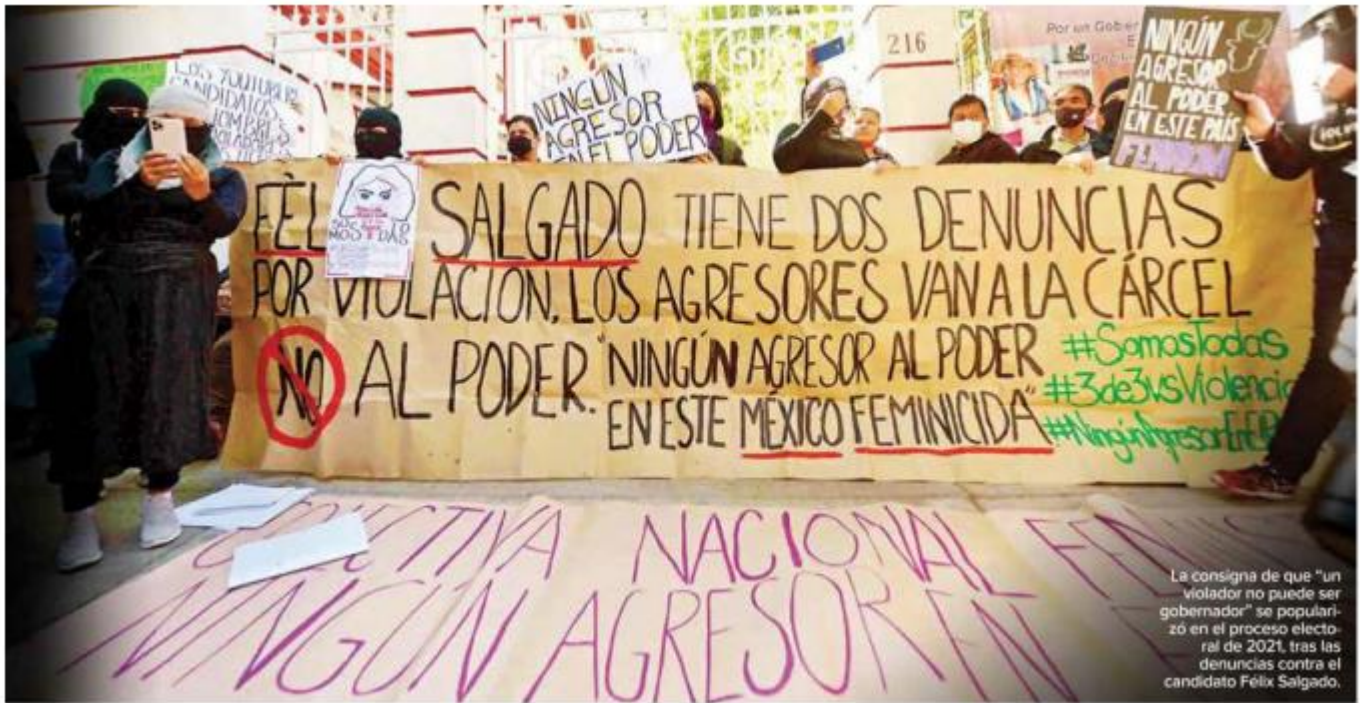 LOS YOUTUBERS
CANDIDATOS
HOMBRES
NINGÚN
AGRESOR
EN EL PODER
216
Por un Gober
NINGÚN
AGRESOR
AL PODER
EN ESTE PAÍS
FEMINICIDA
FÉL SALGADO TIENE DOS DENUNCIAS
POR VIOLACIÓN, LOS AGRESORES VAN A LA CÁRCEL
NO AL PODER. "NINGÚN AGRESOR AL PODER
EN ESTE MÉXICO FEMINICIDA"
#SomosTodas
#3de3vsViolencia
#NingúnAgresorEnElP
COLECTIVA NACIONAL FEMINIS
NINGÚN AGRESOR EN E
La consigna de que "un
violador no puede ser
gobernador" se populari-
zó en el proceso electo-
ral de 2021, tras las
denuncias contra el
candidato Félix Salgado.